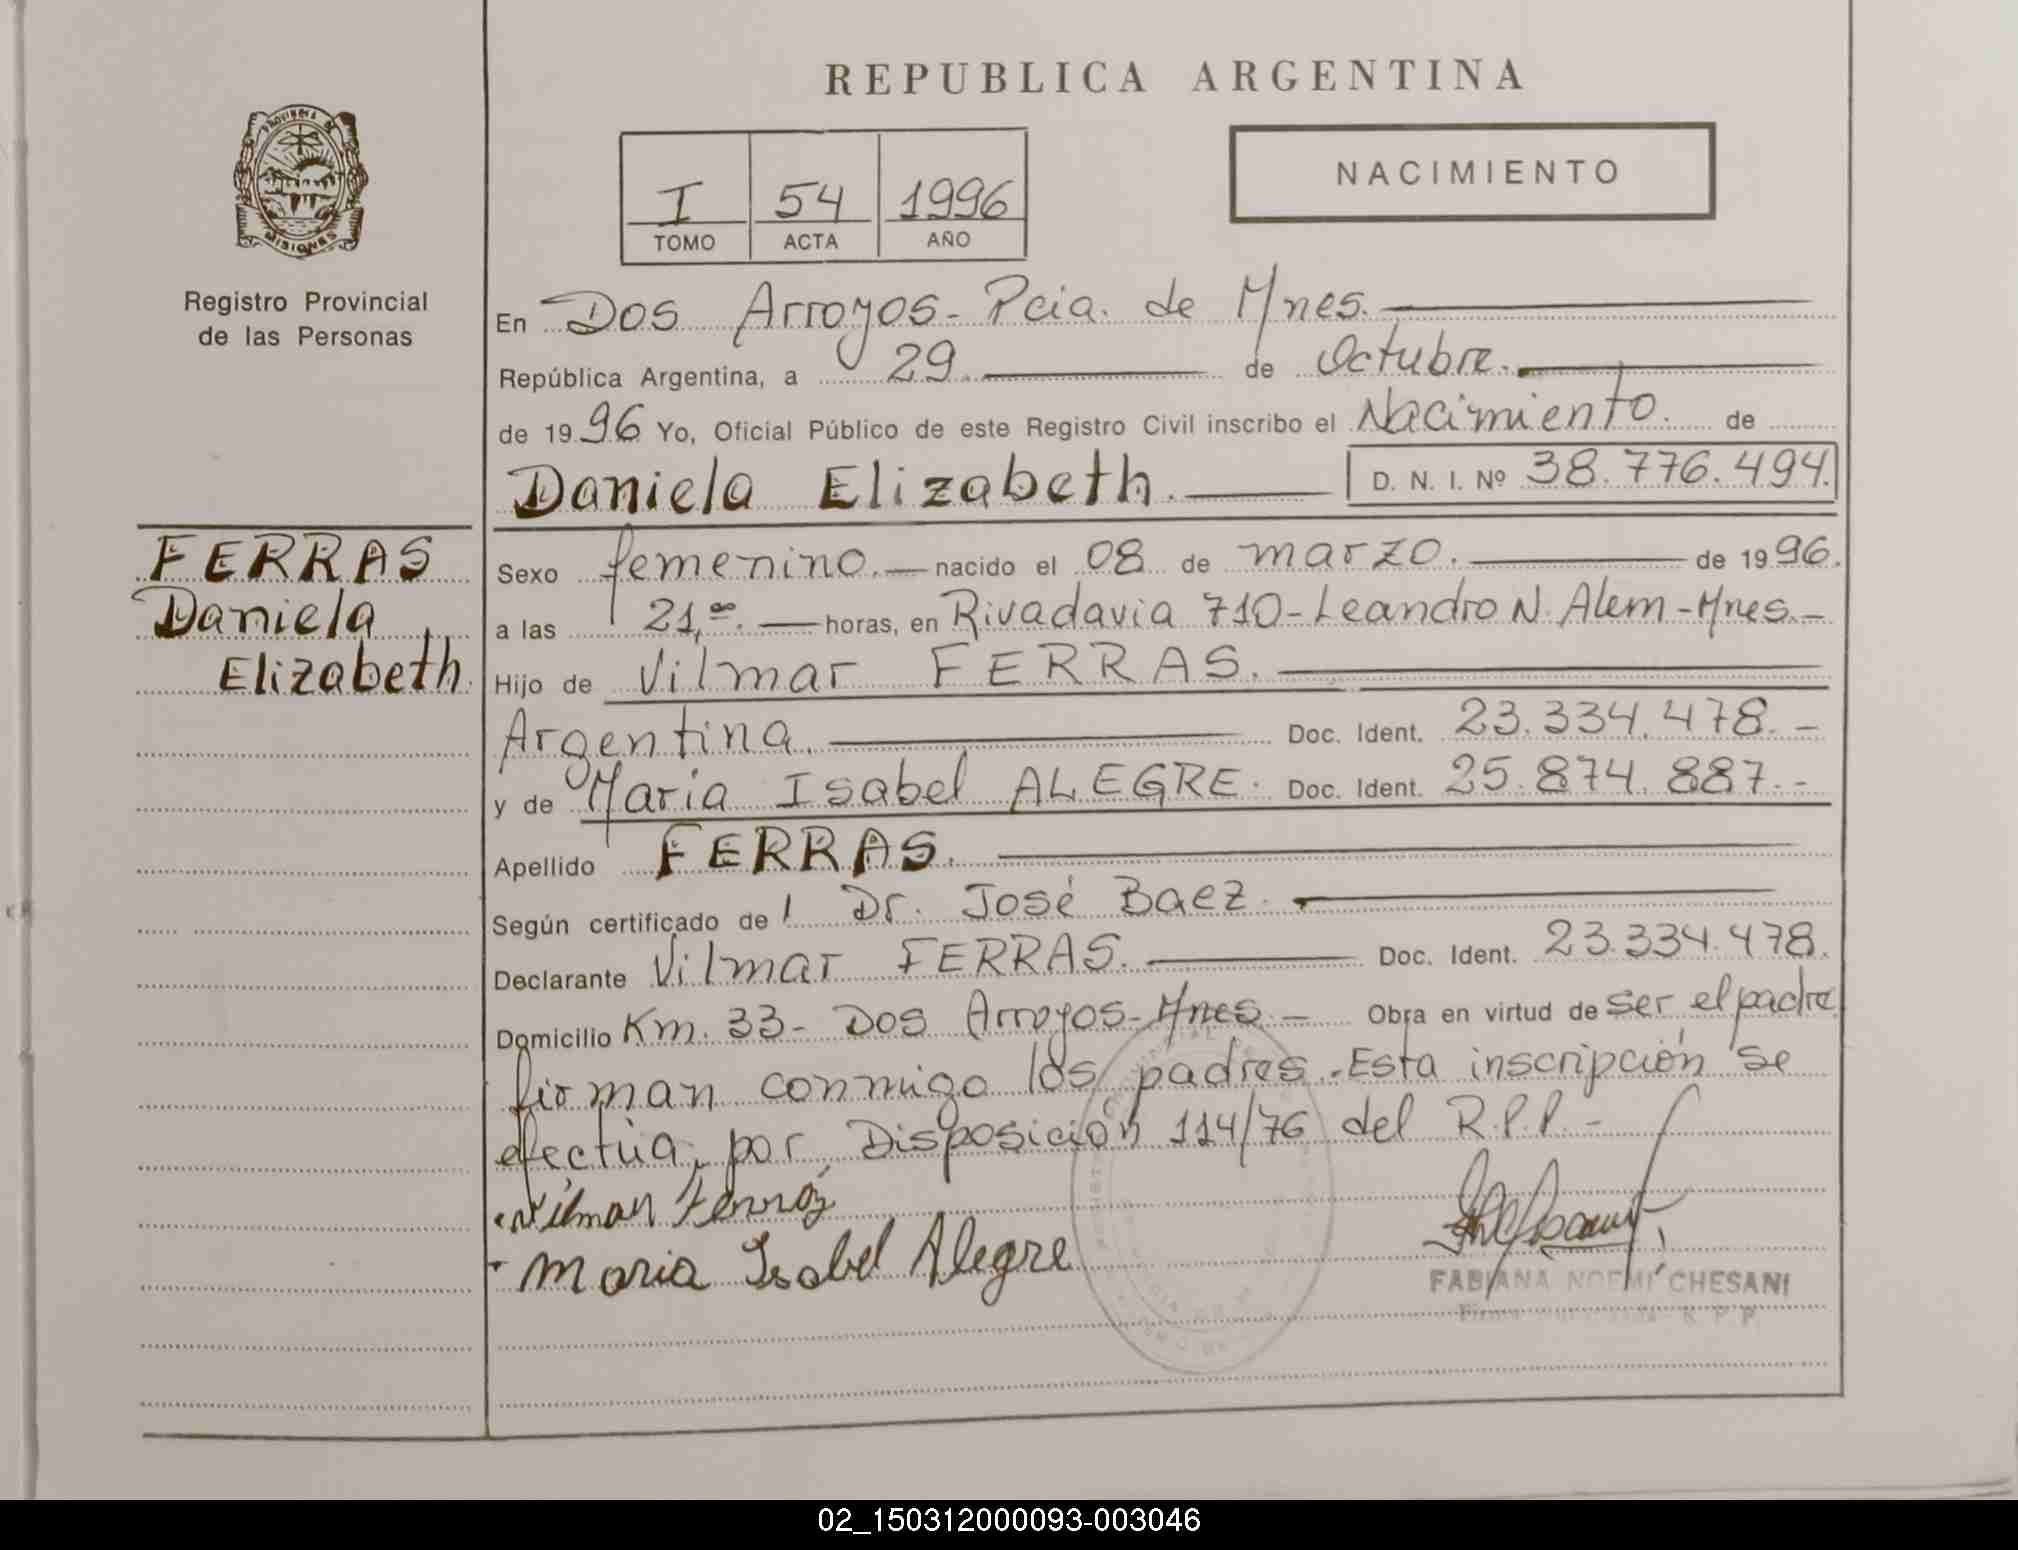 REPUBLICA ARGENTINA
PROVINCIA DE
MISIONES
Registro Provincial
de las Personas
I 54 1996
TOMO ACTA AÑO
NACIMIENTO
En Dos Arroyos - Pcia. de Mnes.
República Argentina, a 29 de Octubre.
de 1996 Yo, Oficial Público de este Registro Civil inscribo el Nacimiento. de
Daniela Elizabeth. D. N. I. Nº 38.776.494.
FERRAS
Daniela
Elizabeth.
Sexo femenino. nacido el 08 de marzo. de 1996.
a las 21,00. horas, en Rivadavia 710 - Leandro N. Alem - Mnes. -
Hijo de Vilmar FERRAS.
Argentina. Doc. Ident. 23.334.478. -
y de Maria Isabel ALEGRE. Doc. Ident. 25.874.887. -
Apellido FERRAS.
Según certificado de l Dr. José Baez.
Declarante Vilmar FERRAS. Doc. Ident. 23.334.478.
Domicilio Km. 33 - Dos Arroyos - Mnes. - Obra en virtud de ser el padre
firman conmigo los padres. - Esta inscripción se
efectúa, por Disposición 114/76 del R.P.P. -
Vilmar Ferras
Maria Isabel Alegre
FABIANA NOEMI CHESANI
R. P. P.
02_150312000093-003046